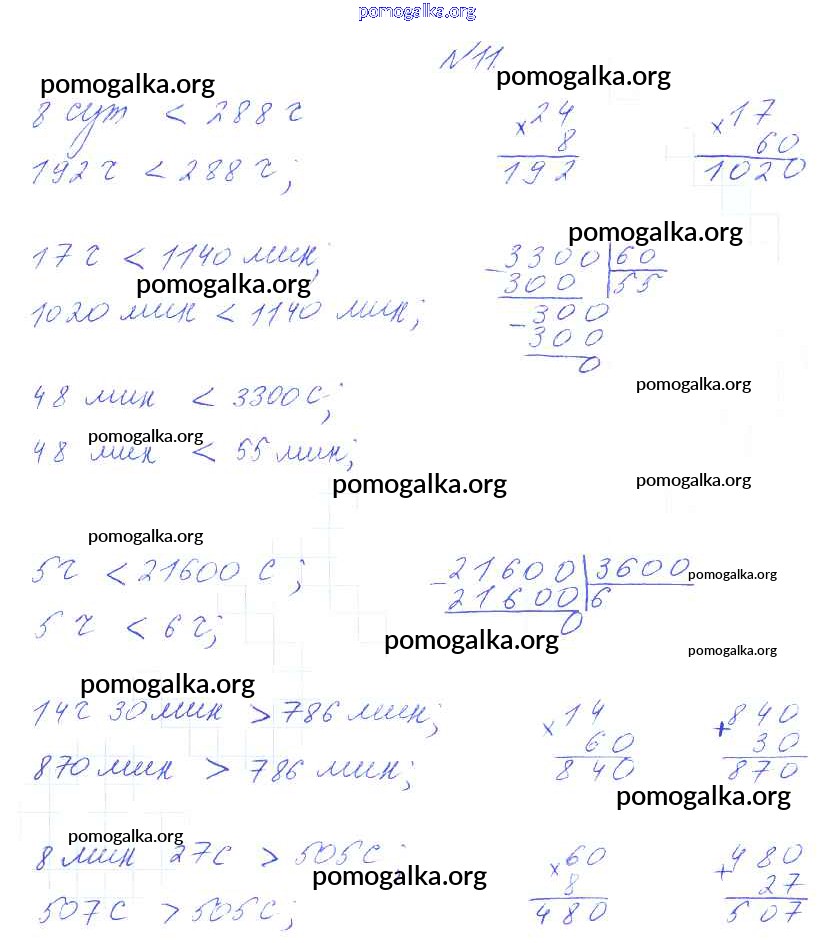 pomogalka.org
№ 11.
pomogalka.org pomogalka.org
8 сут < 288 г
× 24
8
192
× 17
60
1020
192 г < 288 г;
pomogalka.org
17 г < 1140 мин;
pomogalka.org
1020 мин < 1140 мин;
- 3300 | 60
300 | 55
- 300
300
0
pomogalka.org
48 мин < 3300 с;
pomogalka.org
48 мин < 55 мин;
pomogalka.org pomogalka.org
pomogalka.org
5 г < 21600 с;
- 21600 | 3600
21600 | 6
0
pomogalka.org
5 г < 6 г;
pomogalka.org
pomogalka.org
pomogalka.org
14 г 30 мин > 786 мин;
× 14
60
840
+ 840
30
870
870 мин > 786 мин;
pomogalka.org
pomogalka.org
8 мин 27 с > 505 с;
pomogalka.org
× 60
8
480
+ 480
27
507
507 с > 505 с;